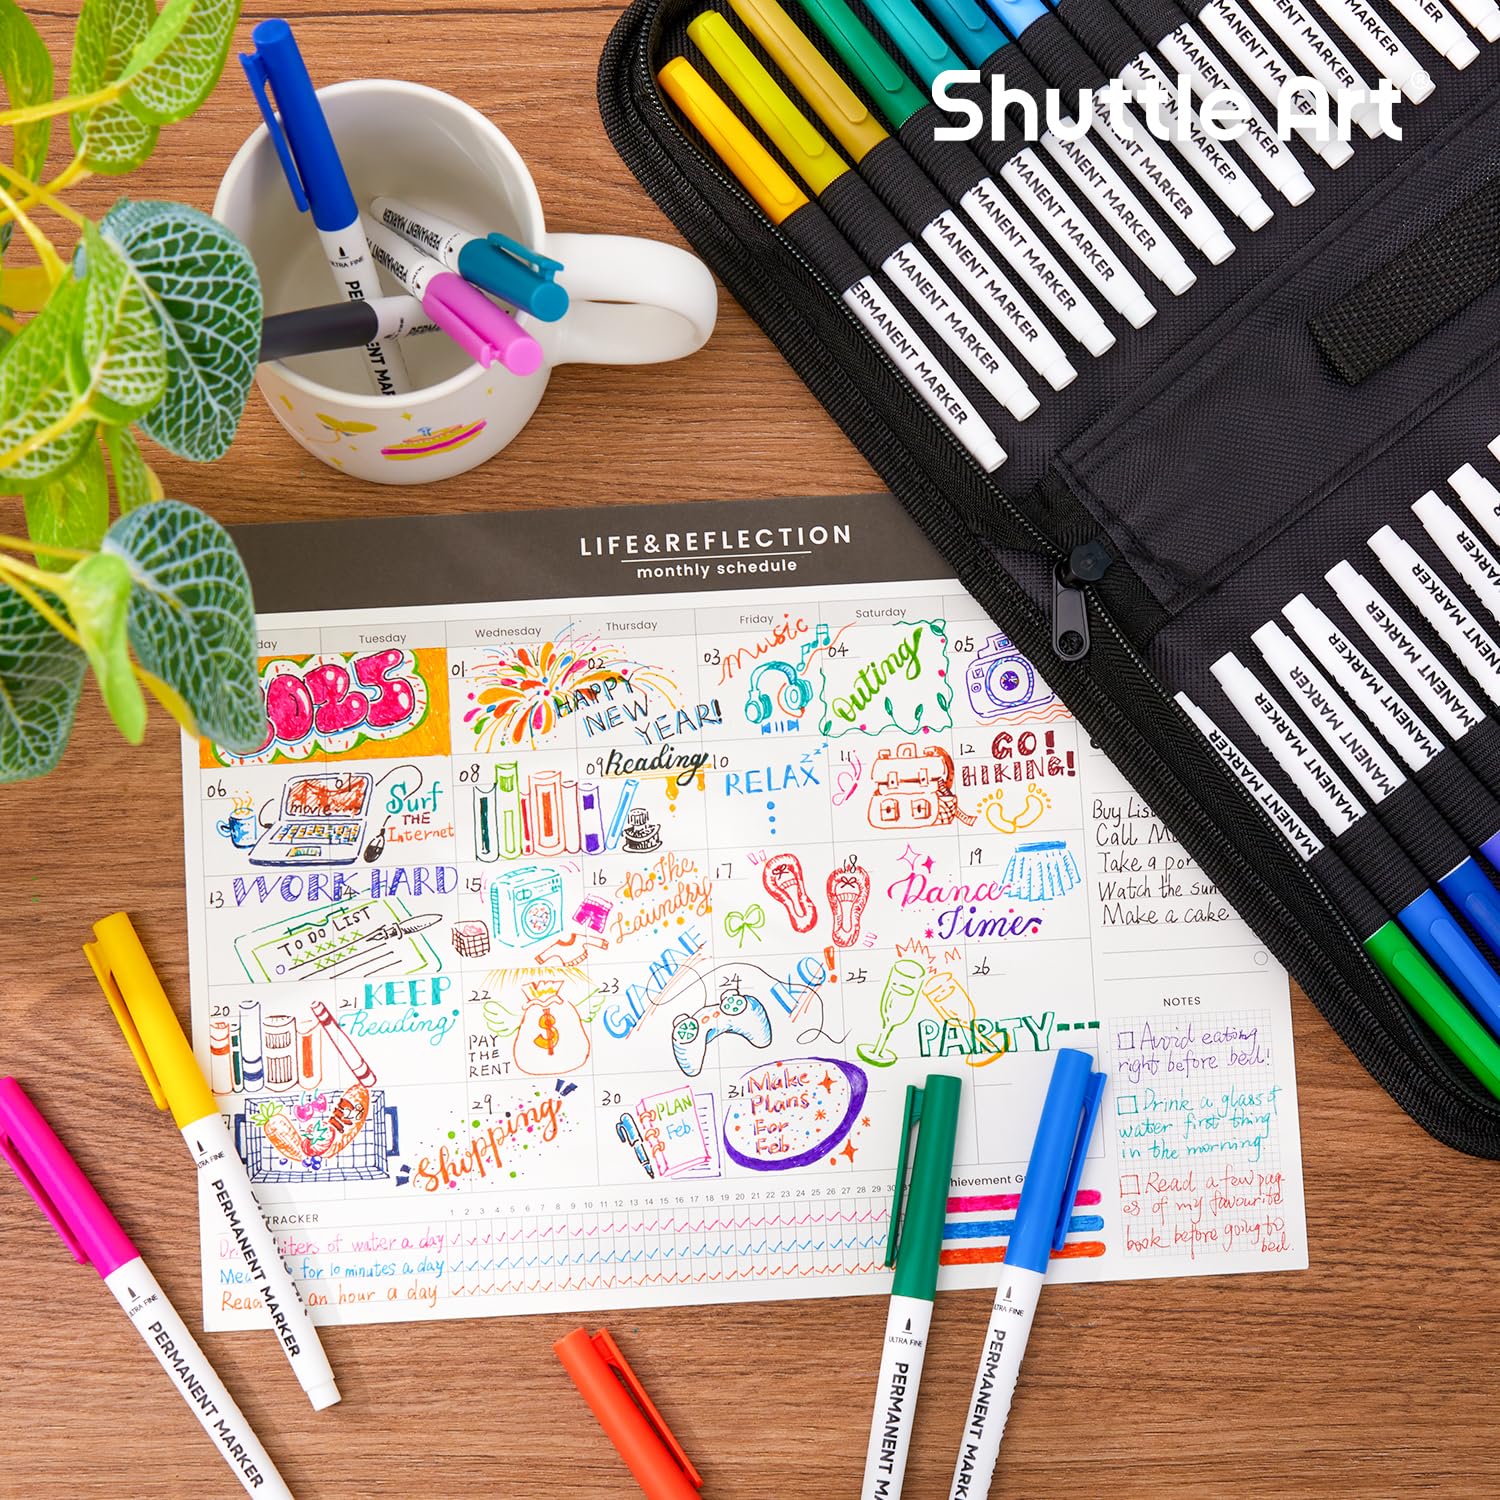 Shuttle Art®
LIFE&REFLECTION
monthly schedule
Tuesday
Wednesday
Thursday
Friday
Saturday
01
02
HAPPY
NEW
YEAR!
03
music
04
outing
05
06
movie
Surf
THE
Internet
08
09
Reading
10
RELAX
zzz
11
12
GO!
HIKING!
13
14
WORK HARD
TO DO LIST
15
16
Do the
Laundry
17
18
19
Dance
Time
20
21
KEEP
Reading
22
PAY
THE
RENT
$
23
GAME
24
25
26
PARTY---
28
29
Shopping
30
PLAN
Feb.
31
Make
Plans
For
Feb.
Buy
Call
Take a
Watch the
Make a cake
NOTES
Avoid eating
right before bed!
Drink a glass of
water first thing
in the morning.
Read a few pag-
es of my favourite
book before going to
bed.
TRACKER
1 2 3 4 5 6 7 8 9 10 11 12 13 14 15 16 17 18 19 20 21 22 23 24 25 26 27 28 29 30
of water a day
for 10 minutes a day
an hour a day
ULTRA FINE
PERMANENT MARKER
ULTRA FINE
PERMANENT MARKER
ULTRA FINE
PERMANENT
ULTRA FINE
PERMANENT MARK
ULTRA FINE
PERMANENT MARKER
PERMANENT MARKER
MANENT MARKER
MANENT MARKER
MANENT MARKER
MANENT MARKER
MANENT MARKER
MANENT MARKER
MANENT MARKER
MANENT MARKER